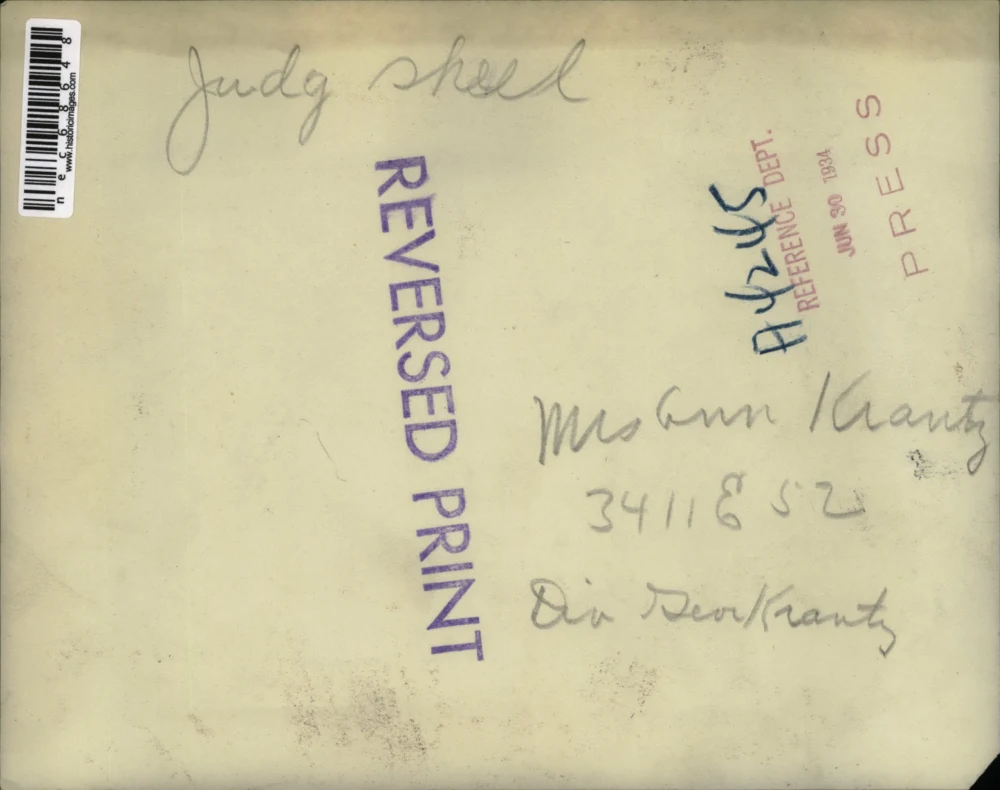 Judg Skeel
REVERSED PRINT
A4245
REFERENCE DEPT.
JUN 30 1934
PRESS
Mrs Ann Krantz
3411 E 52
Div Geo Krantz
nec68648
www.historicimages.com